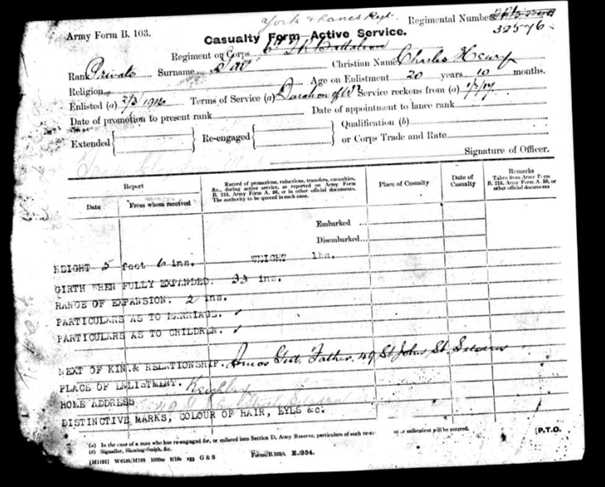 York & Lancs Regt.
Army Form B. 103.
Regimental Number
32576
Casualty Form—Active Service.
Regiment or Corps 6th Battalion
Rank Private Surname Christian Name Charles Henry
Religion Age on Enlistment 20 years 10 months.
Enlisted (a) 2/3/1916 Terms of Service (a) Duration of Service reckons from (a)
Date of promotion to present rank Date of appointment to lance rank
Extended Re-engaged Qualification (b)
or Corps Trade and Rate
Signature of Officer.
Report
Date From whom received
Record of promotions, reductions, transfers, casualties, &c., during active service, as reported on Army Form B. 213, Army Form A. 36, or in other official documents. The authority to be quoted in each case.
Place of Casualty
Date of Casualty
Remarks
Taken from Army Form B. 213, Army Form A. 36, or other official documents
Embarked
Disembarked
HEIGHT 5 feet 6 ins. WEIGHT lbs.
GIRTH WHEN FULLY EXPANDED. 33 ins.
RANGE OF EXPANSION. 2 ins.
PARTICULARS AS TO MARRIAGE.
PARTICULARS AS TO CHILDREN.
NEXT OF KIN & RELATIONSHIP. Father, 49 St Johns St
PLACE OF ENLISTMENT. Keighley
HOME ADDRESS
DISTINCTIVE MARKS, COLOUR OF HAIR, EYES &c.
(a) In the case of a man who has re-engaged for, or enlisted into Section D, Army Reserve, particulars of such re- or enlistment will be entered.
(b) Signaller, Shoeing-Smith, &c.
[P.T.O.
G & S Form/B.103/4. E./354.